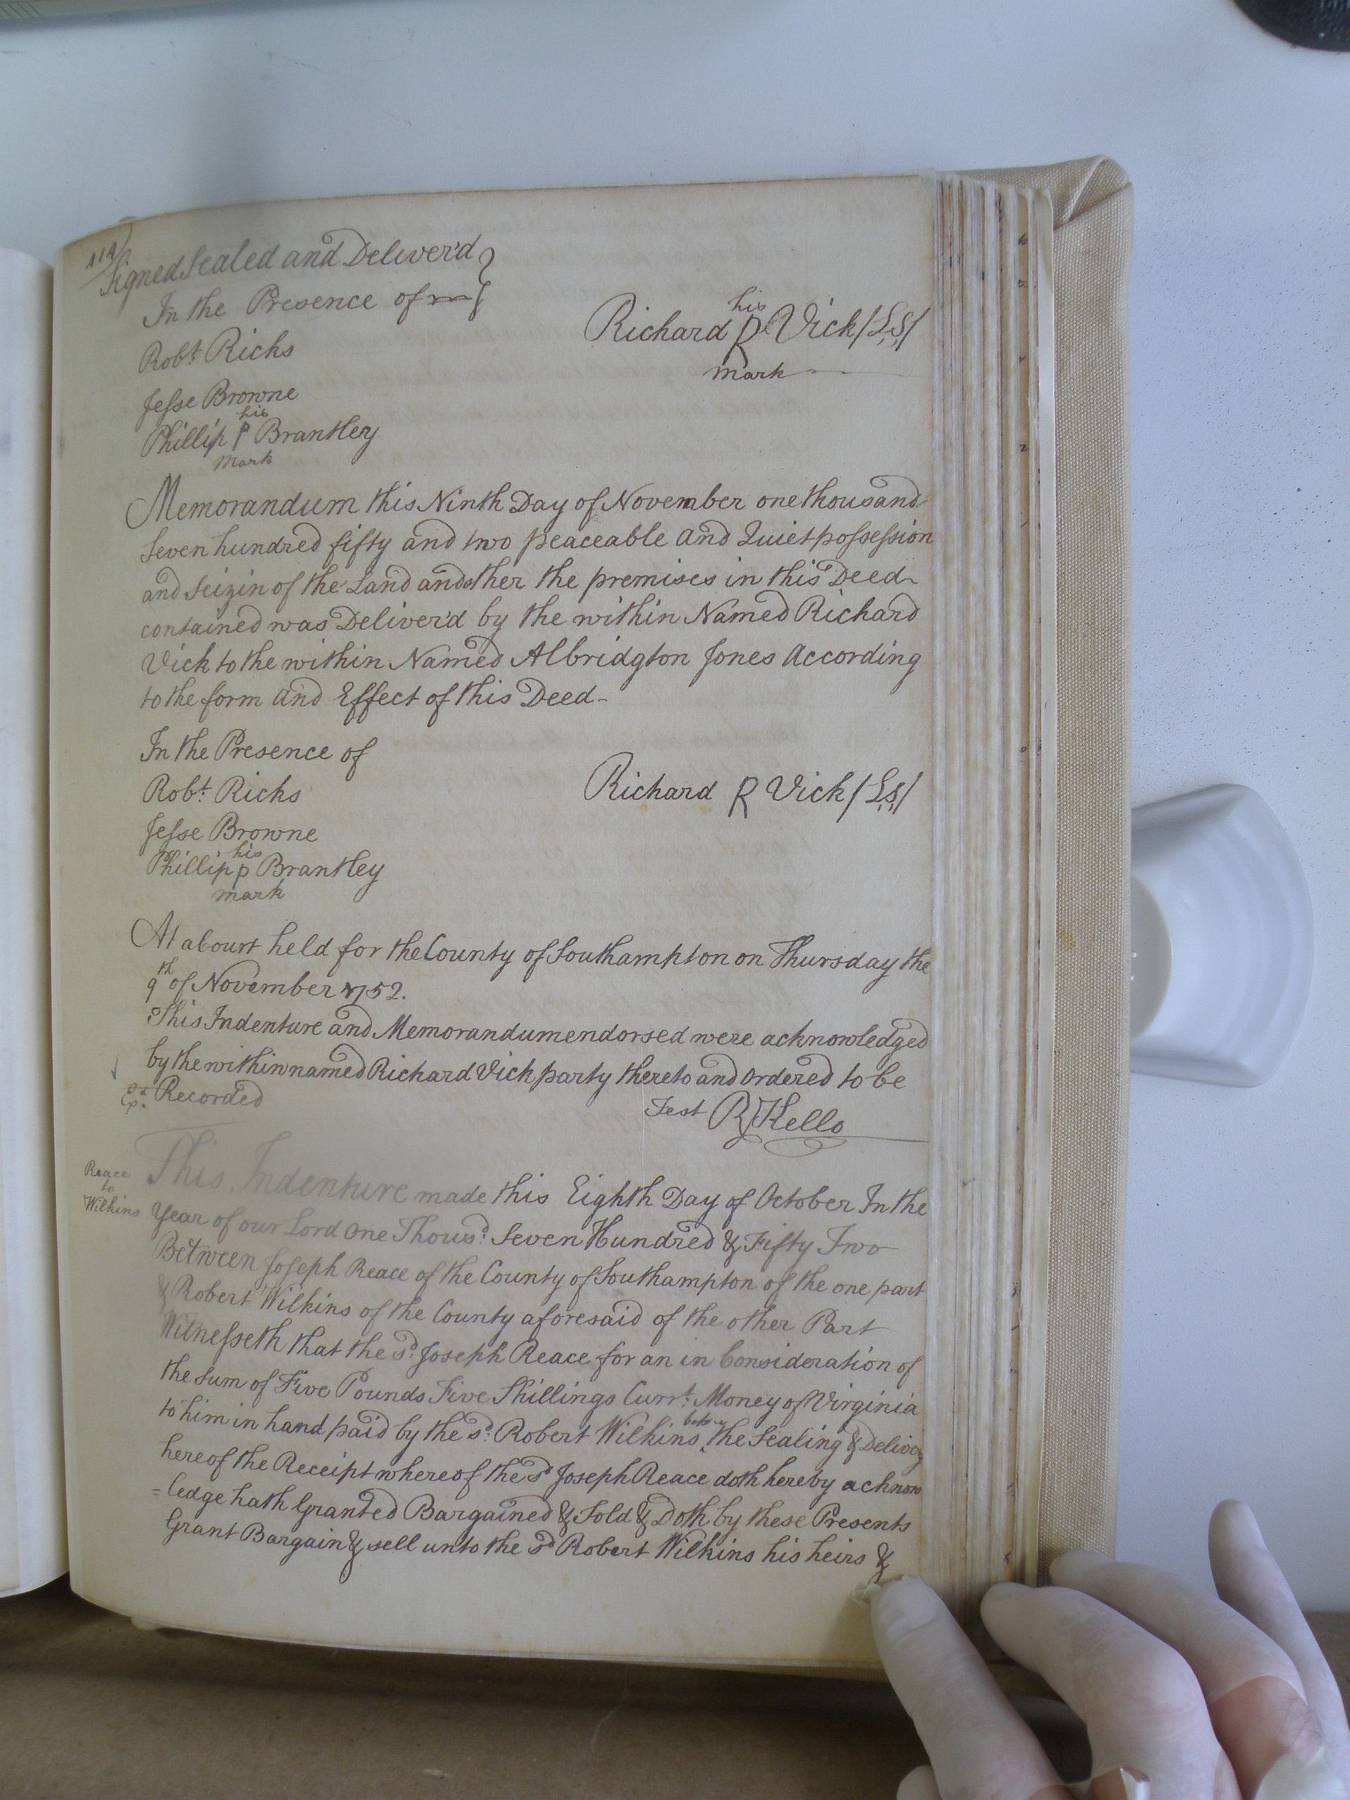 Signed Sealed and Deliver'd
In the Presence of
his
Richard R Vick /L,S,/
mark
Robt. Ricks
Jesse Browne
his
Phillip P Brantley
mark
Memorandum this Ninth Day of November one thousand
Seven hundred fifty and two peaceable and Quiet possession
and Seizin of the Land and other the premises in this Deed
contained was Deliver'd by the within Named Richard
Vick to the within Named Albridgton Jones According
to the form and Effect of this Deed
In the Presence of
Robt. Ricks
Richard R Vick /L,S,/
Jesse Browne
his
Phillip p Brantley
mark
At a Court held for the County of Southampton on Thursday the
9th of November 1752.
This Indenture and Memorandum endorsed were acknowledged
by the within named Richard Vick party thereto and Ordered to be
Exd. Recorded
Test R Kello
Reace
to
Wilkins
This Indenture made this Eighth Day of October In the
Year of our Lord One Thousd. Seven Hundred & Fifty Two
Between Joseph Reace of the County of Southampton of the one part
& Robert Wilkins of the County aforesaid of the other Part
Witnesseth that the sd. Joseph Reace for an in Consideration of
the Sum of Five Pounds Five Shillings Currt. Money of Virginia
to him in hand paid by the sd. Robert Wilkins before the Sealing & Delivery
hereof the Receipt whereof the sd Joseph Reace doth hereby acknow
=ledge hath Granted Bargained & Sold & Doth by these Presents
Grant Bargain & sell unto the sd Robert Wilkins his heirs &